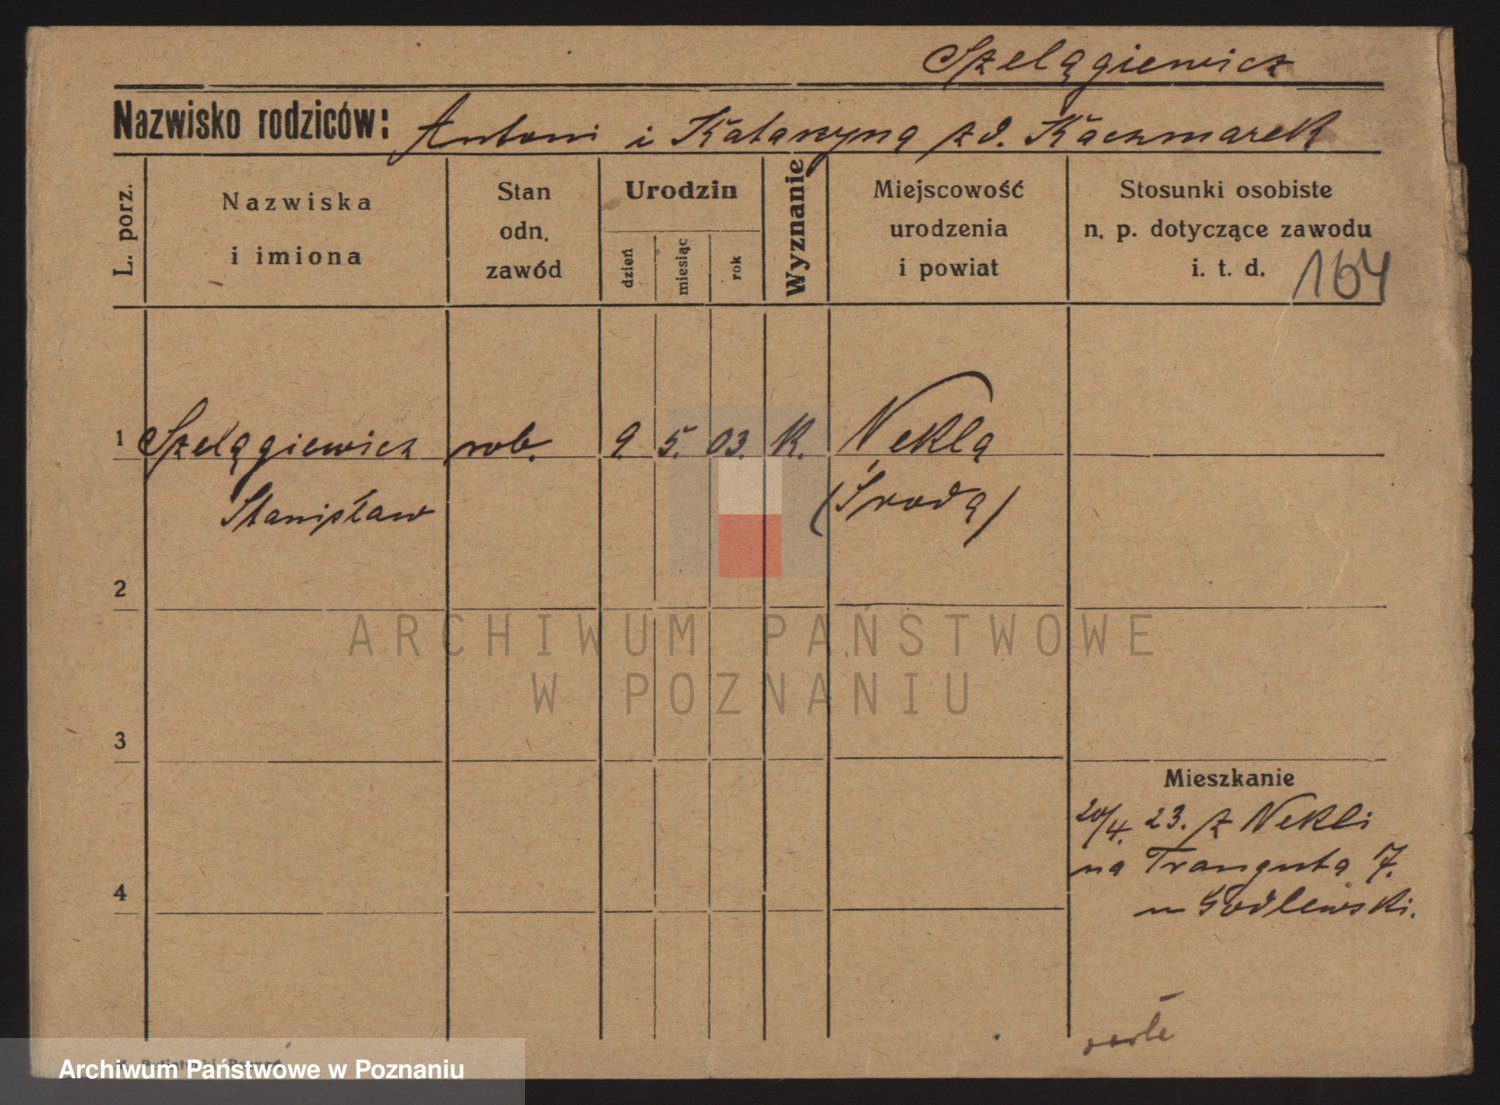 Szelągiewicz
Nazwisko rodziców: Antoni i Katarzyna zd. Kaczmarek
L. porz.
Nazwiska
i imiona
Stan
odn.
zawód
Urodzin
dzień
miesiąc
rok
Wyznanie
Miejscowość
urodzenia
i powiat
Stosunki osobiste
n. p. dotyczące zawodu
i. t. d.
164
1 Szelągiewicz rob. 9. 5. 03. K. Nekla
Stanisław (Środa)
2
3
4
Mieszkanie
20/4. 23. z Nekli
na Trauguta 7.
u Godlewski.
ARCHIWUM PAŃSTWOWE
W POZNANIU
Archiwum Państwowe w Poznaniu